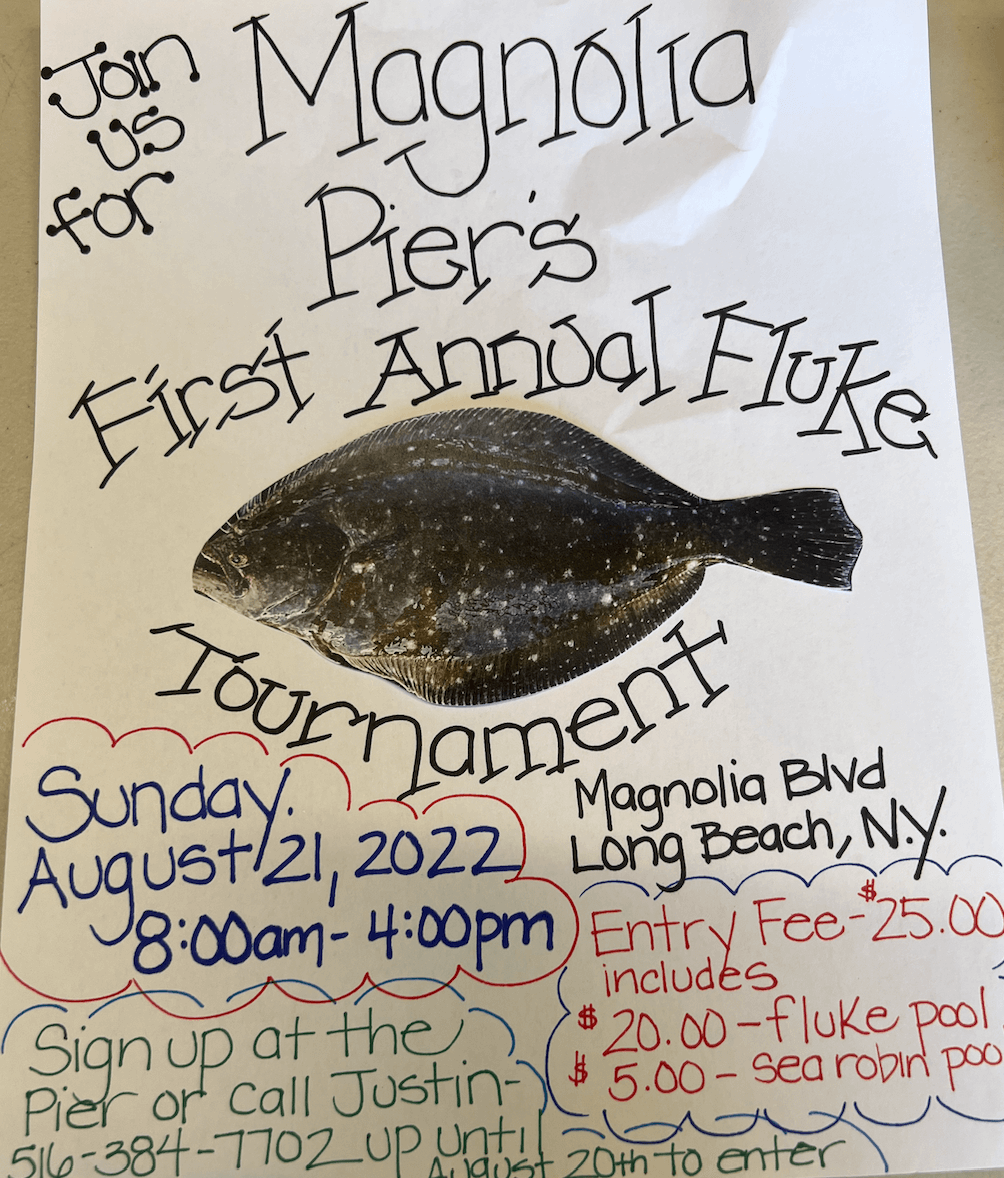 Join
us
for
Magnolia
Pier's
First Annual Fluke
Tournament
Sunday.
August 21, 2022
8:00am - 4:00pm
Magnolia Blvd
Long Beach, N.Y.
Entry Fee - $25.00
includes
$ 20.00 - fluke pool
$ 5.00 - sea robin poo
Sign up at the
Pier or call Justin-
516-384-7702 up until
August 20th to enter